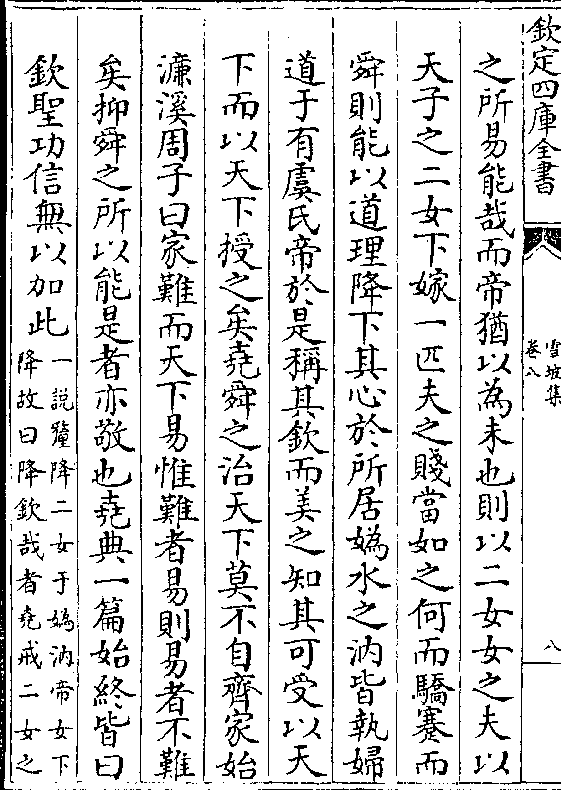 欽定四庫全書
雪坡集
卷八
八
之所易能哉而帝猶以為未也則以二女女之夫以
天子之二女下嫁一匹夫之賤當如之何而驕蹇而
舜則能以道理降下其心於所居嬀水之汭皆執婦
道于有虞氏帝於是稱其欽而美之知其可受以天
下而以天下授之矣堯舜之治天下莫不自齊家始
濂溪周子曰家難而天下易惟難者易則易者不難
矣抑舜之所以能是者亦敬也堯典一篇始終皆曰
欽聖功信無以加此
一說釐降二女于嬀汭帝女下
降故曰降欽哉者堯戒二女之